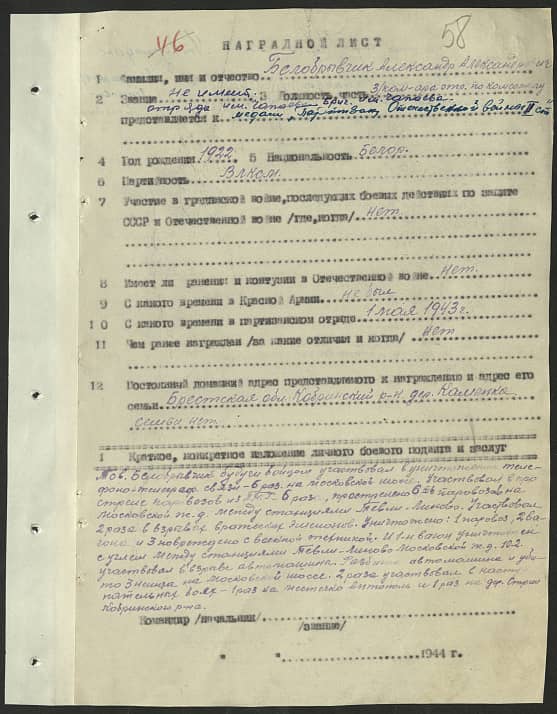 46
58
НАГРАДНОЙ ЛИСТ
1 Фамилия, имя и отчество Белобрывчик Александр
2 Звание не имеет, 3 Должность, часть З/ком-ра отр. по комсомолу
отряда им. Чапаева бриг. им. Чапаева
представляется к медали "Партизану Отечественной войны" II ст
4 Год рождения 1922 5 Национальность Белор.
6 Партийность Влком.
7 Участие в гражданской войне, последующих боевых действиях по защите
СССР и Отечественной войне /где, когда/ Нет
8 Имеет ли ранения и контузии в Отечественной войне нет.
9 С какого времени в Красной Армии не был
10 С какого времени в партизанском отряде 1 мая 1943 г.
11 Чем ранее награжден /за какие отличия и когда/ нет
12 Постоянный домашний адрес представляемого к награждению и адрес его
семьи Брестская обл. Кобринский р-н дер.
семьи нет
1 Краткое, конкретное изложение личного боевого подвига и заслуг
Тов. Белобрывчик будучи бойцом участвовал в уничтожении теле-
фоно-телеграф. связи - 6 раз на московской шоссе. Участвовал в ро
стреле паровозов из ПТР 6 раз, прострелено 6 паровозов на
Московской ж.д. между станциями Тевли-Линово. Участвовал
2 раза в взрывах вражеских эшелонов. Уничтожено: 1 паровоз, 2 ва-
гона и 3 повреждено с военной техникой и 1 вагон уничтожен
с углем между станциями Тевли-Линово Московской ж.д. 1 раз
участвовал в взрыве автомашины. Разбита автомашина и уби-
то 3 немца на Московской шоссе. 2 раза участвовал в насту-
пательных боях - 1 раз на местечко и 1 раз на дер.
Кобринского р-на.
Командир /начальник/
/звание/
" " 1944 г.